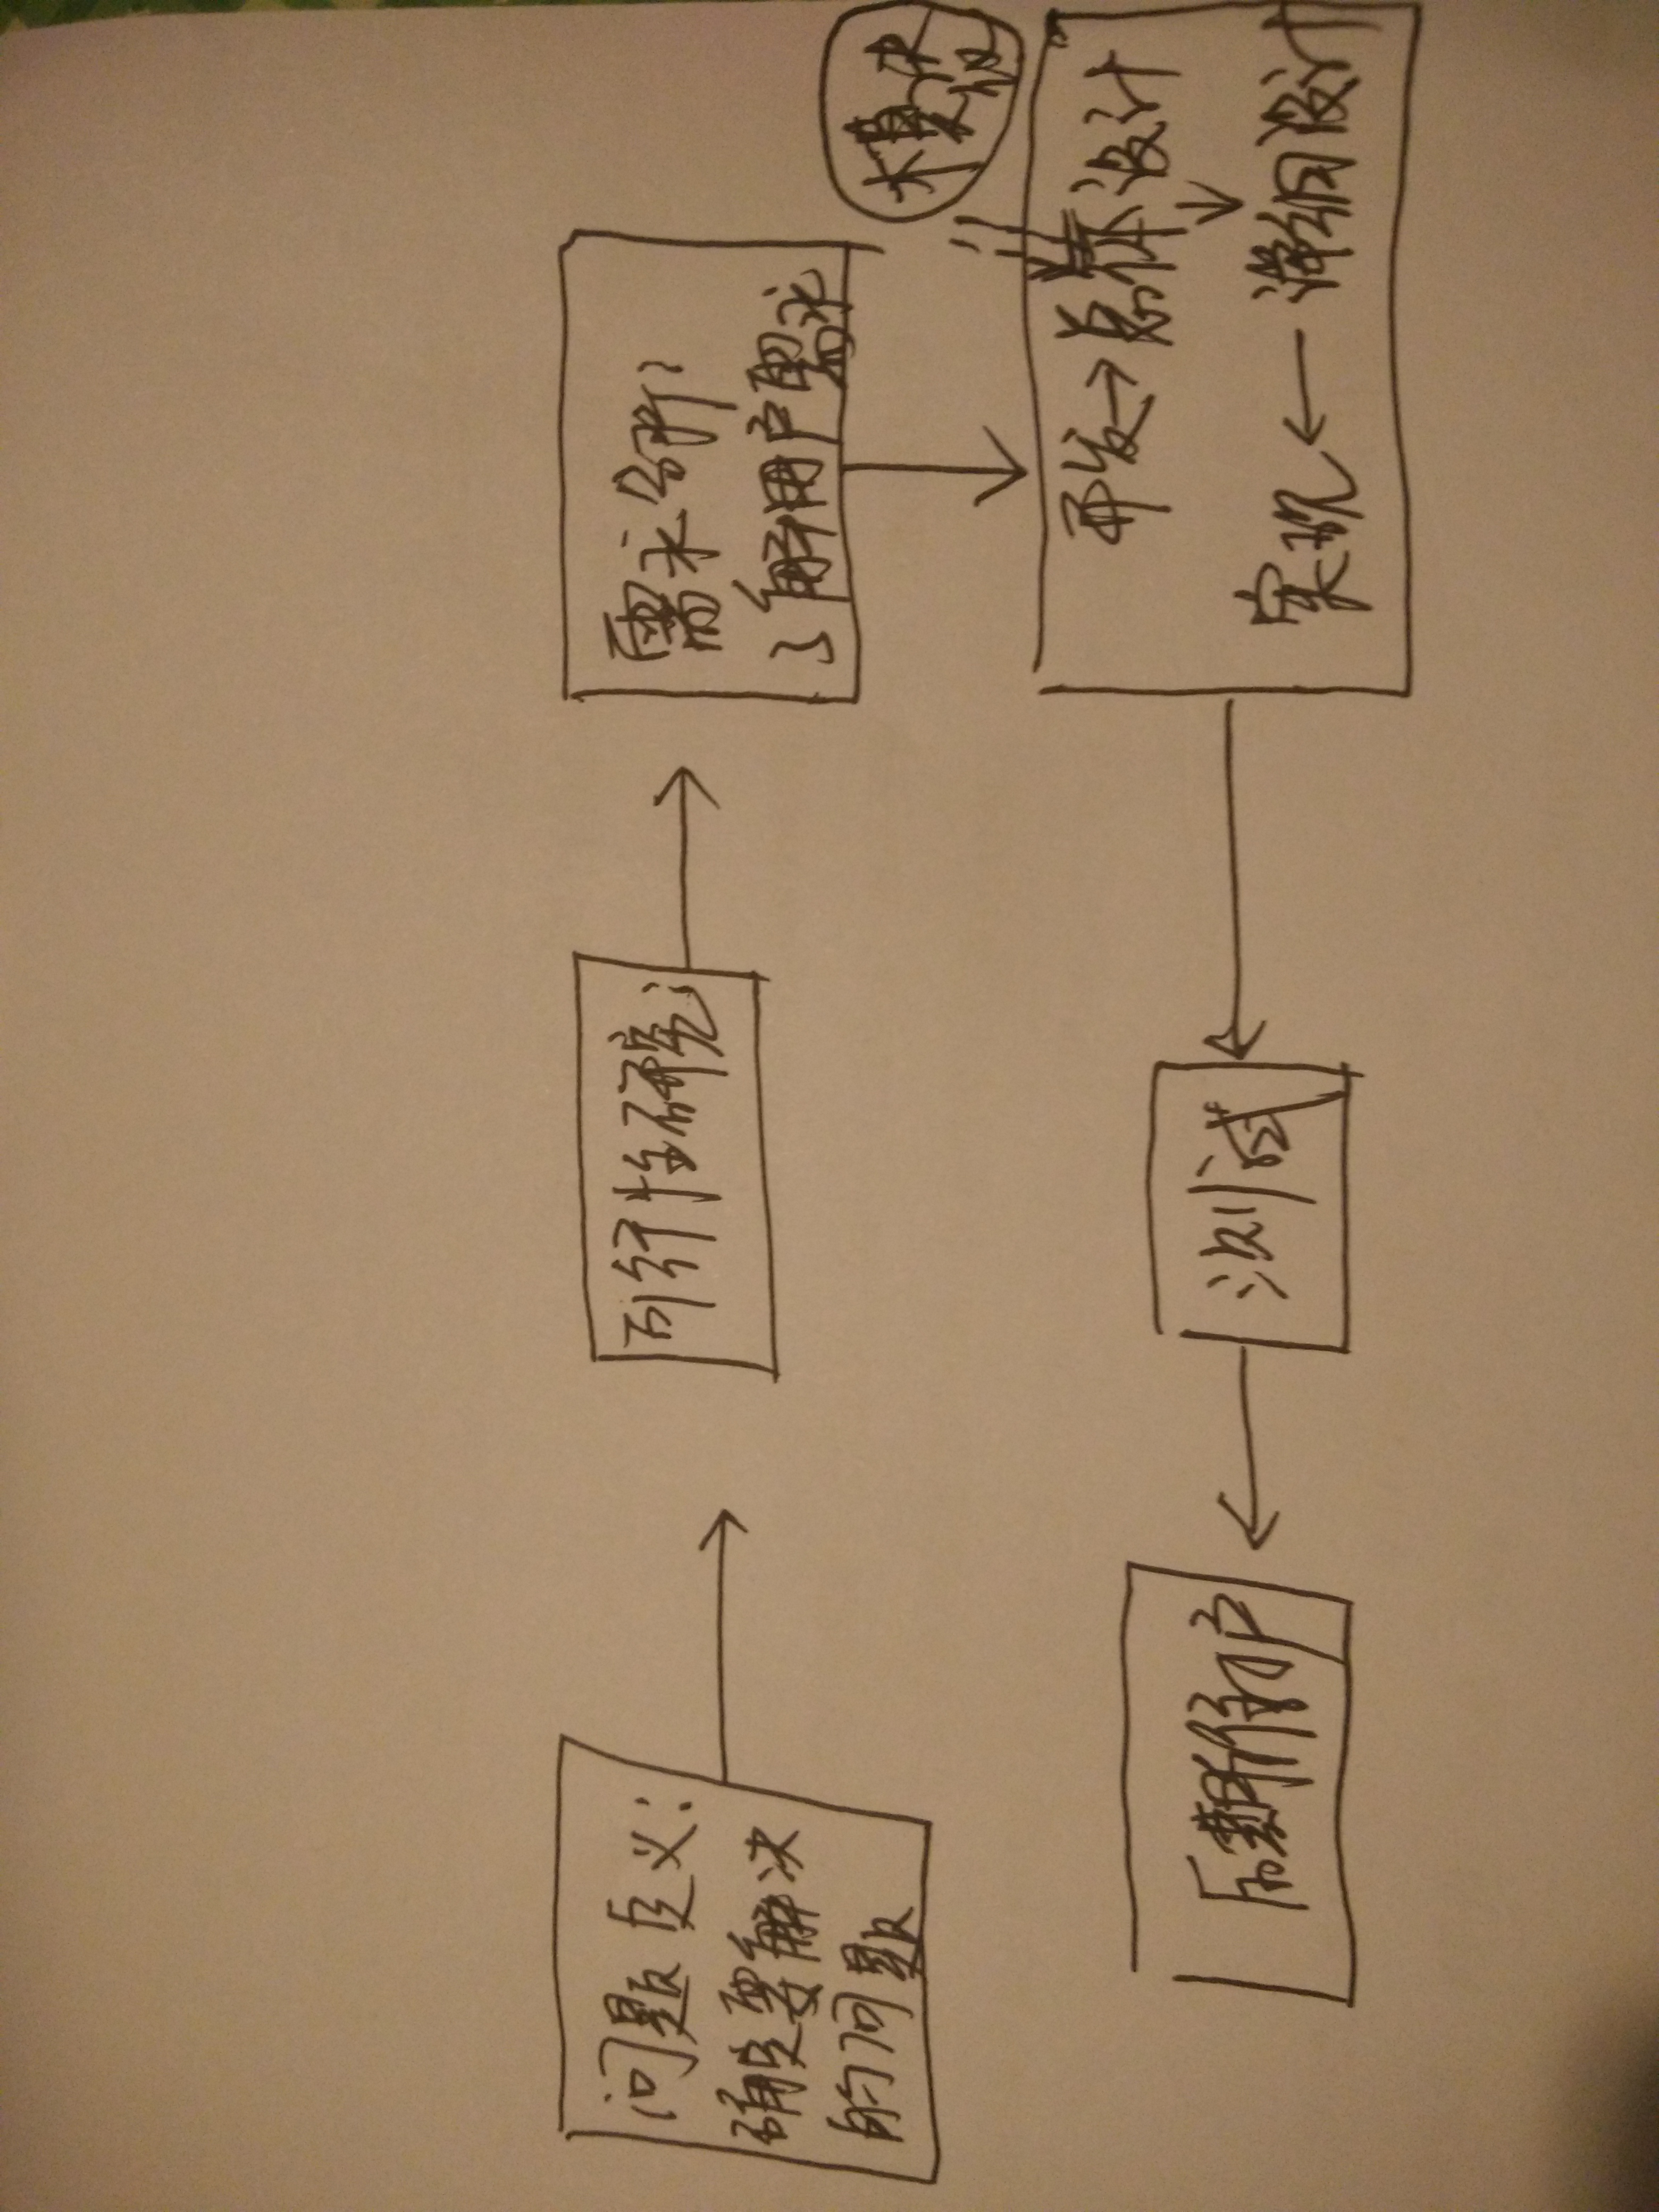 问题定义:
确定要解决
的问题
可行性研究:
需求分析:
了解用户需求
模块
开发→总体设计
↓
实现←详细设计
测试
后期维护